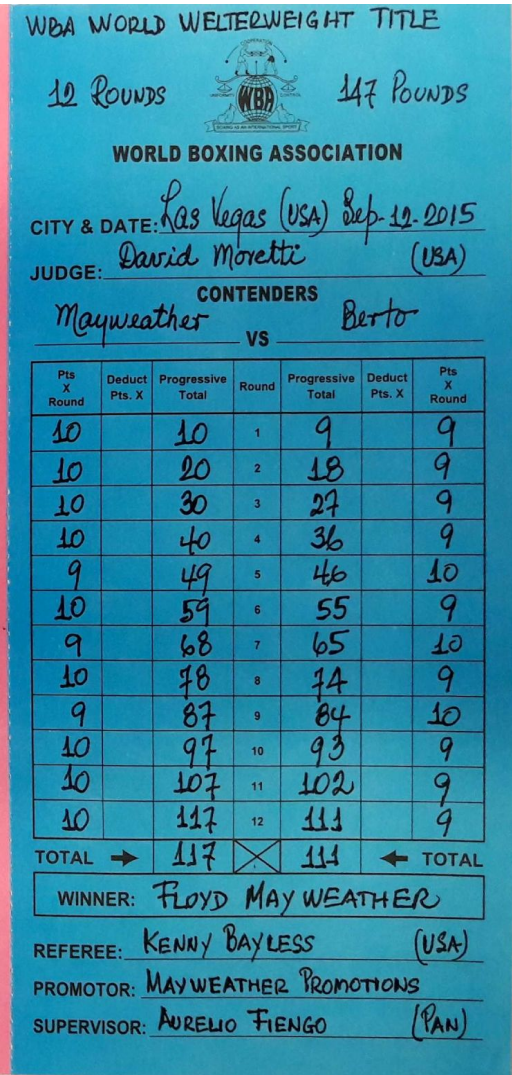 WBA WORLD WELTERWEIGHT TITLE
12 ROUNDS 147 POUNDS
WBA
BOXING AS AN INTERNATIONAL SPORT
WORLD BOXING ASSOCIATION
CITY & DATE: Las Vegas (USA) Sep-12-2015
JUDGE: David Moretti (USA)
CONTENDERS
Mayweather VS Berto
Pts X Round Deduct Pts. X Progressive Total Round Progressive Total Deduct Pts. X Pts X Round
10 10 1 9 9
10 20 2 18 9
10 30 3 27 9
10 40 4 36 9
9 49 5 46 10
10 59 6 55 9
9 68 7 65 10
10 78 8 74 9
9 87 9 84 10
10 97 10 93 9
10 107 11 102 9
10 117 12 111 9
TOTAL 117 111 TOTAL
WINNER: FLOYD MAYWEATHER
REFEREE: KENNY BAYLESS (USA)
PROMOTOR: MAYWEATHER PROMOTIONS
SUPERVISOR: AURELIO FIENGO (PAN)